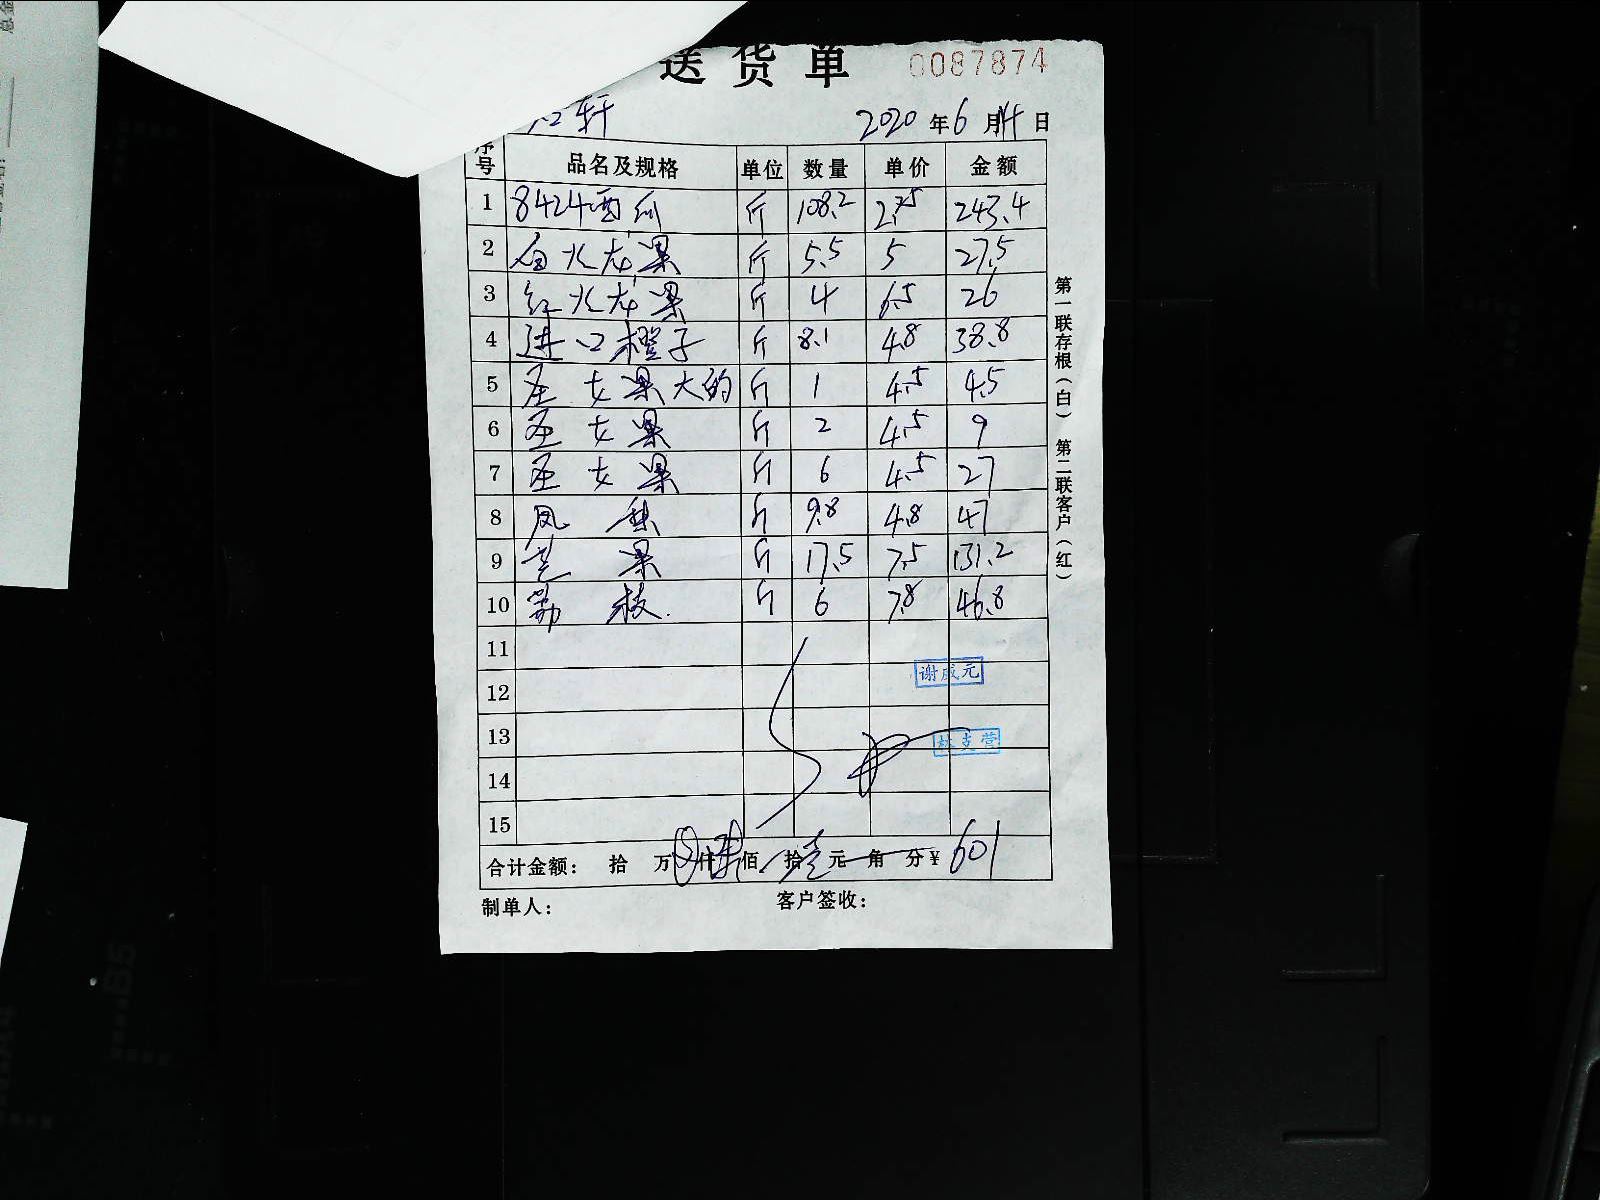 送货单 0087874
轩 2020年6月14日
序号 品名及规格 单位 数量 单价 金额
1 8424西瓜 斤 108.2 2.25 243.4
2 白火龙果 斤 5.5 5 27.5
3 红火龙果 斤 4 6.5 26
4 进口橙子 斤 8.1 4.8 38.8
5 圣女果大的 斤 1 4.5 4.5
6 圣女果 斤 2 4.5 9
7 圣女果 斤 6 4.5 27
8 凤梨 斤 9.8 4.8 47
9 芒果 斤 17.5 7.5 131.2
10 荔枝. 斤 6 7.8 46.8
11
12 谢成元
13
14
15
合计金额: 拾 万 仟 陆 佰 拾 壹 元 角 分 ¥ 601
制单人: 客户签收:
第一联存根(白) 第二联客户(红)
B5
A4